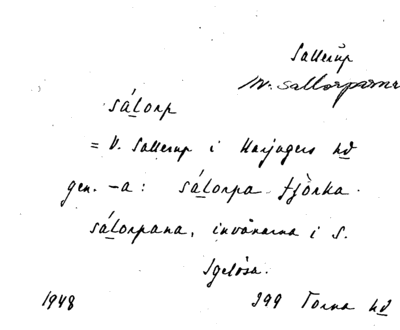 Sallerup
inv. sallorparna
sálorp
= V. Sallerup i Harjagers hd
gen. -a: sálorpa fjörka.
sálorpana, invånarna i S.
Igelösa.
1948 299 Torna hd